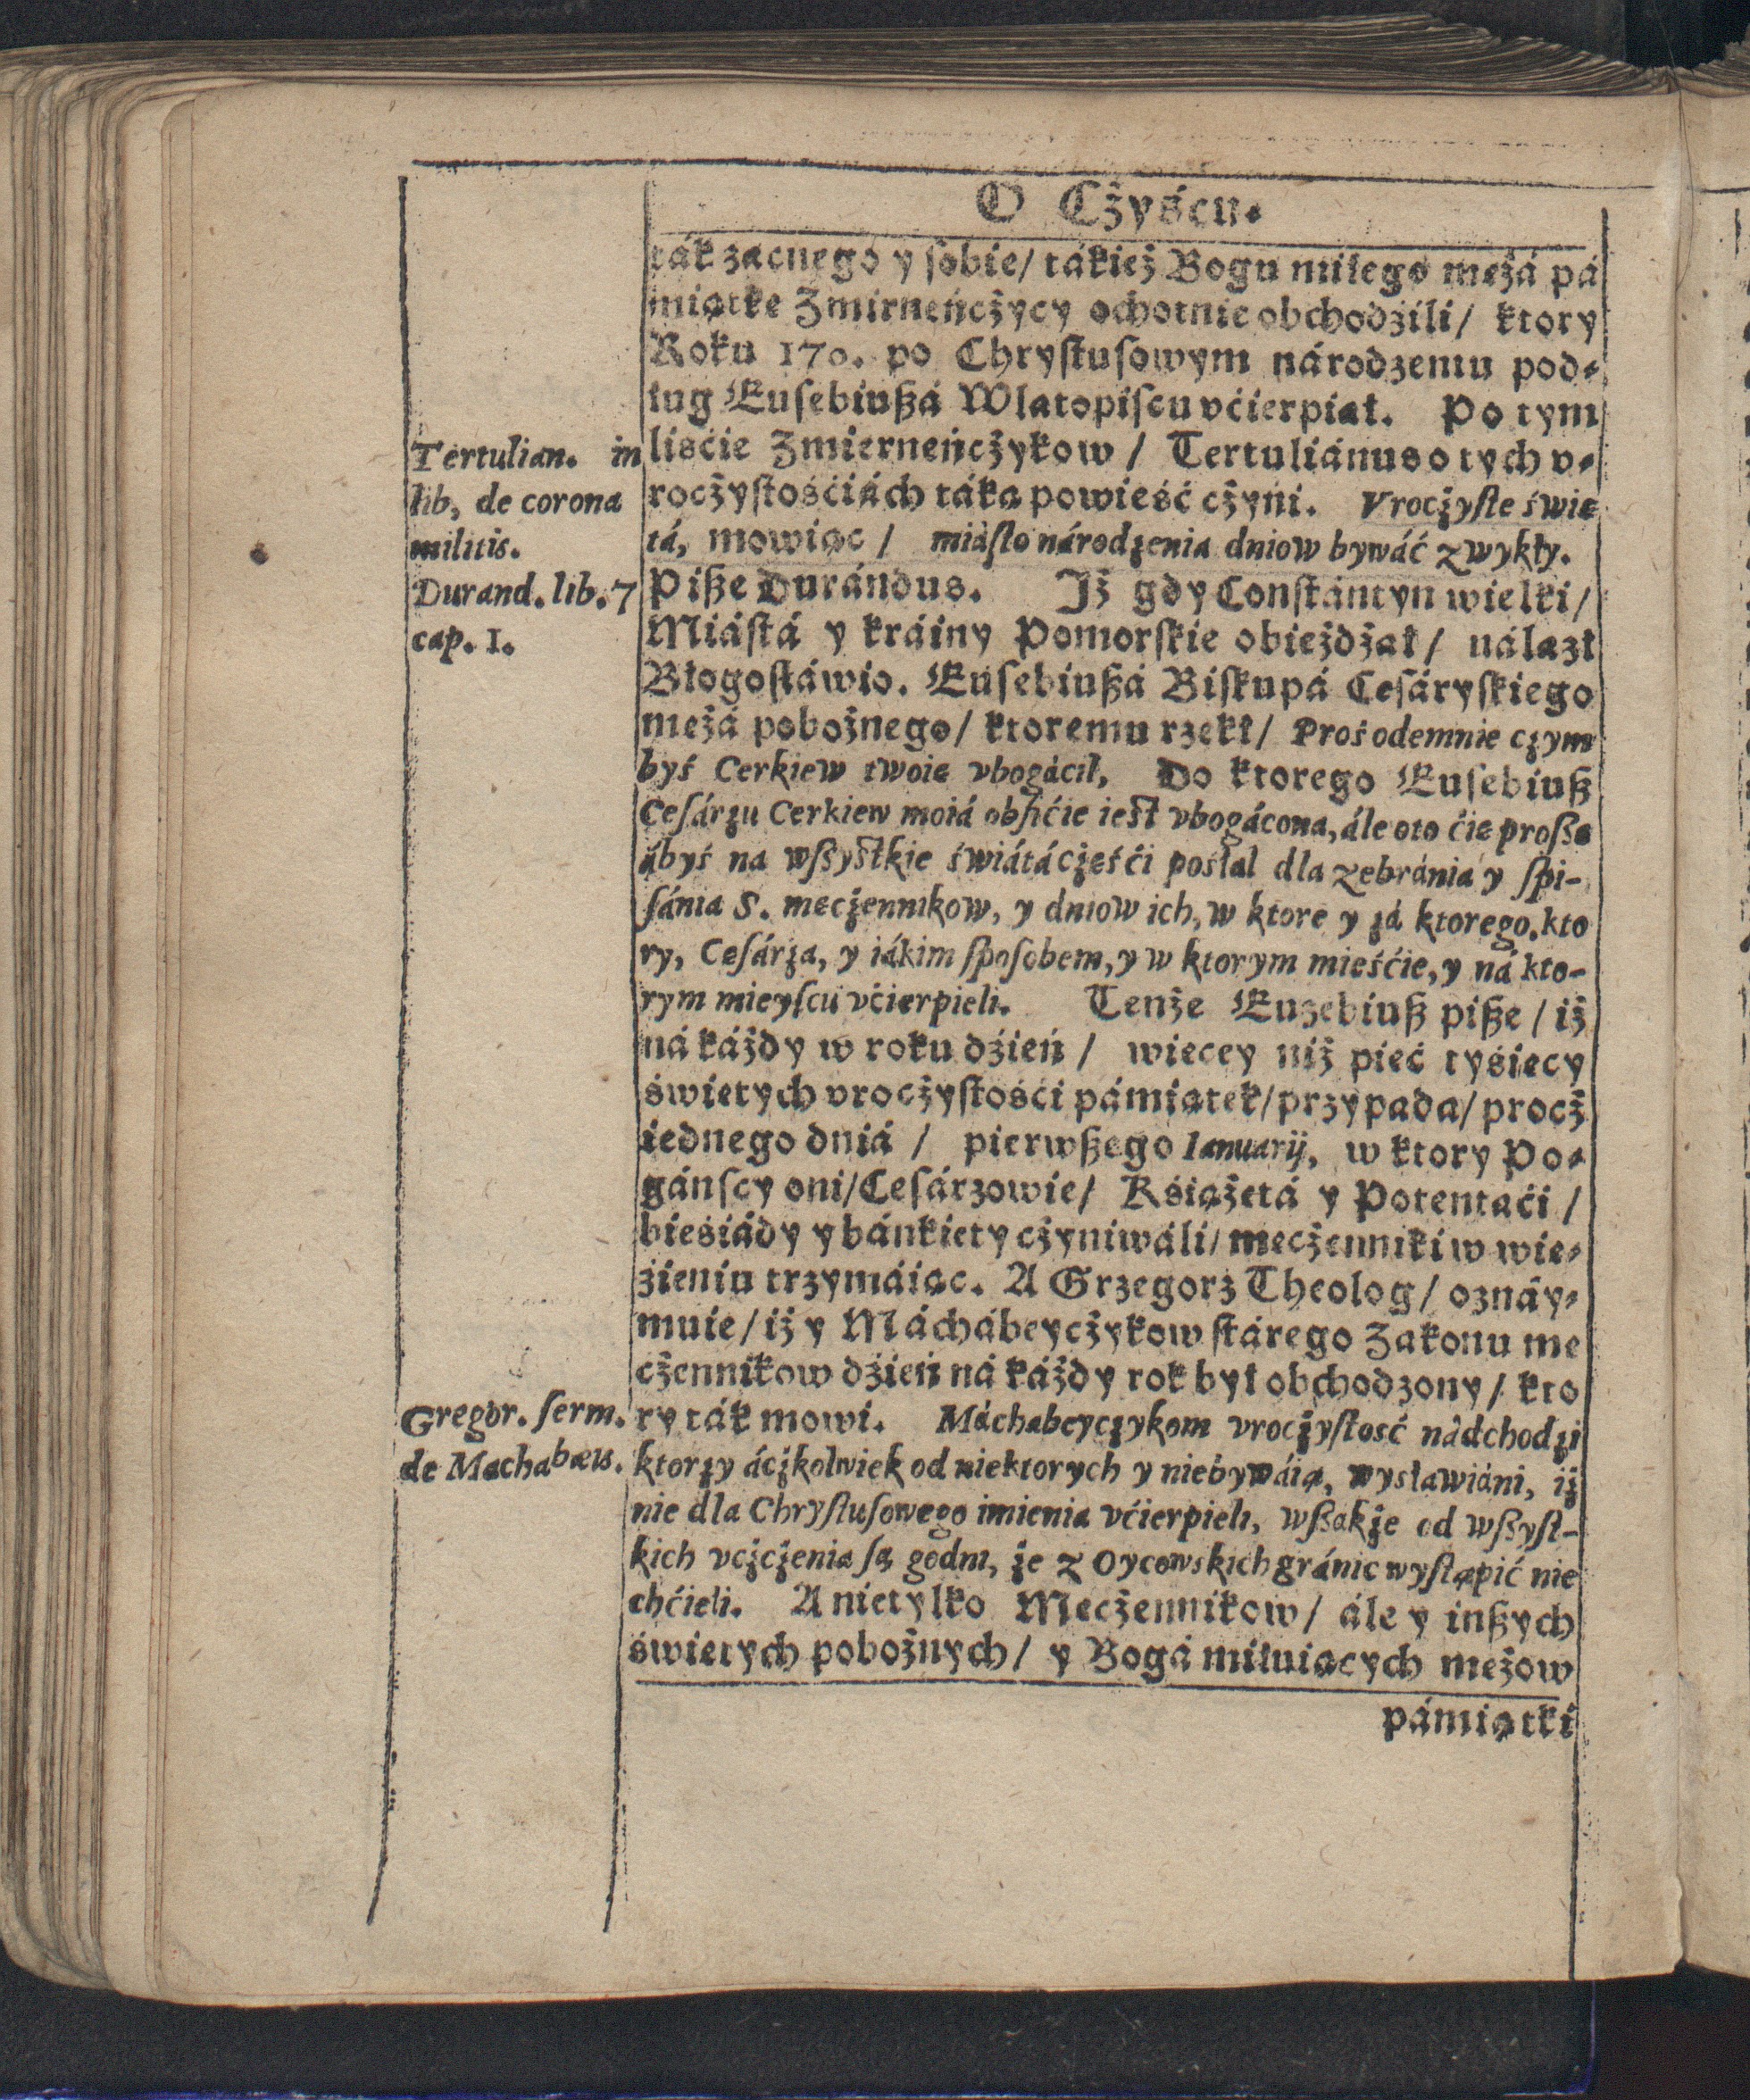 O Cżyścu.
ták zacnego y sobie/ tákież Bogu miłego mężá pá
miątkę Zmirneńcżycy ochotnie obchodzili/ ktory
Roku 170. po Chrystusowym národzeniu pod-
ług Eusebiußá Wlatopiscu vćierpiał. Po tym
Tertulian. in
liśćie Zmierneńcżykow / Tertuliánus o tych v-
lib, de corona
rocżystośćiách táką powieść cżyni. Vrocżyste świę
militis.
tá, mowiąc / miásto národzenia dniow bywáć zwykły.
Durand. lib. 7
Piße Durándus. Iż gdy Constántyn wielki/
cap. 1.
Miástá y kráiny Pomorskie obieżdżał/ nálazł
Błogosłáwio. Eusebiußá Biskupá Cesáryskiego
mężá pobożnego/ ktoremu rzekł/ Proś odemnie cżym
byś Cerkiew twoię vbogácił, Do ktorego Eusebiuß
Cesárzu Cerkiew moiá obfićie iest vbogácona, ále oto ćię proßę
ábyś na wßystkie świátá cżęśći posłal dla zebránia y spi-
sánia S. męcżennikow, y dniow ich, w ktore y zá ktorego. kto
ry, Cesárza, y iákim sposobem, y w ktorym mieśćie, y ná kto-
rym mieyscu vćierpieli. Tenże Euzebiuß piße / iż
ná káżdy w roku dźień / więcey niż pięć tyśięcy
świętych vrocżystośći pámiątek/ przypada/ procż
iednego dniá / pierwßego Ianuarij, w ktory Po-
gánscy oni/ Cesárzowie/ Kśiążętá y Potentaći /
bieśiády y bánkiety cżyniwáli/ męcżenniki w wię-
źieniu trzymáiąc. A Grzegorz Theolog/ oznáy-
muie/ iż y Máchábeycżykow stárego Zakonu mę
cżennikow dźień ná káżdy rok był obchodzony/ kto
Gregor. serm.
ry ták mowi. Máchabeycżykom vrocżystość nádchodzi
de Machabæis.
ktorzy áćżkolwiek od niektorych y niebywáią, wysławiáni, iż
nie dla Chrystusowego imienia vćierpieli, wßakże od wßyst-
kich vcżcżenia są godni, że z Oycowskich gránic wystąpić nie
chćieli. A nietylko Męcżennikow/ ále y inßych
świętych pobożnych/ y Bogá miłuiących mężow
pámiątki